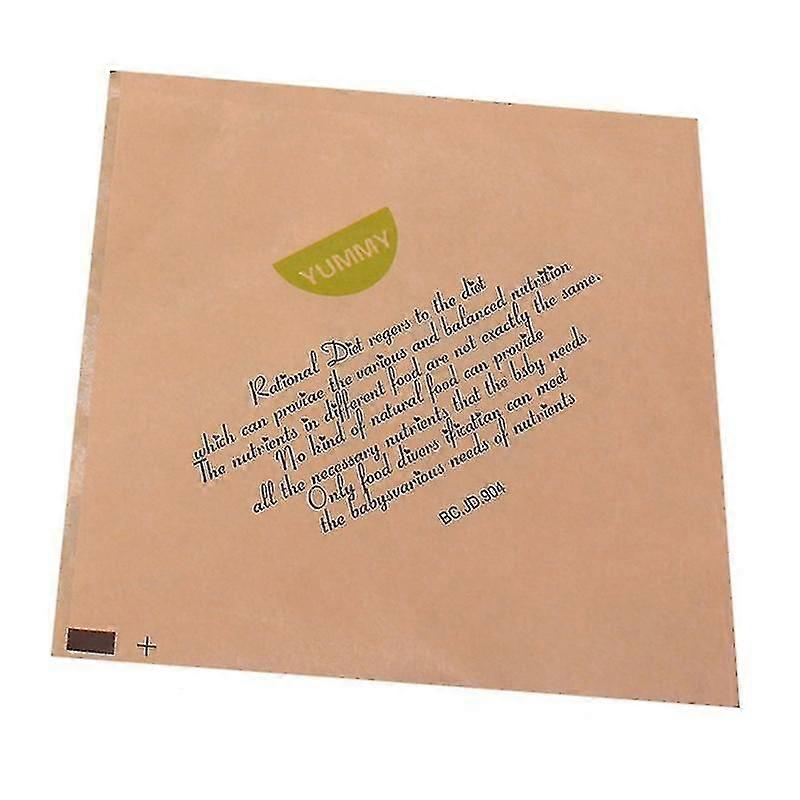 YUMMY
Rational Diet regers to the diet
which can proviae the various and balanced nutrition
The nutrients in different food are not exactly the same.
No kind of natural food can provide
all the necessary nutrients that the bsby needs
Only food divers ification can meet
the babysvarious needs of nutrients
BC.JD.904